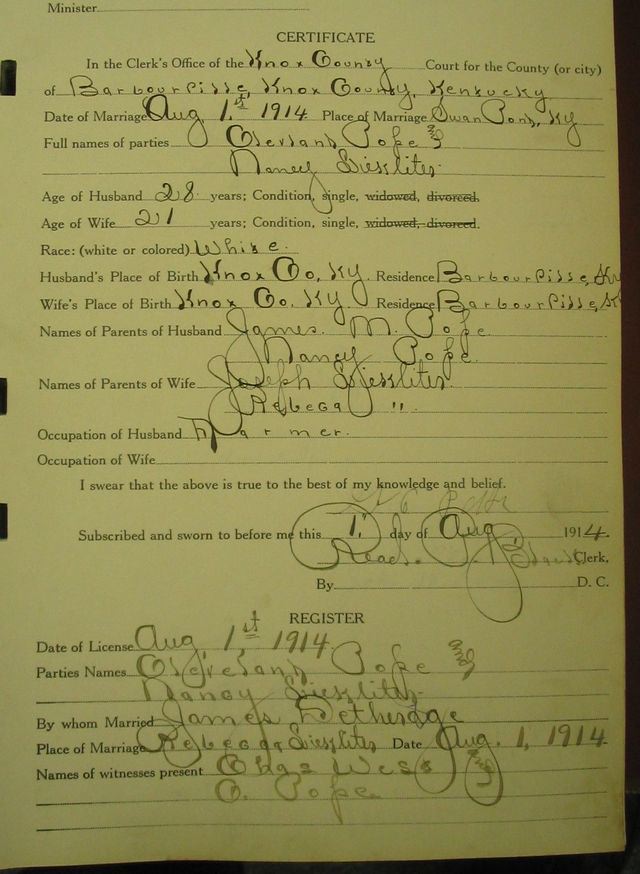 Minister
CERTIFICATE
In the Clerk's Office of the Knox County Court for the County (or city)
of Barbourville, Knox County, Kentucky
Date of Marriage Aug. 1.st 1914 Place of Marriage Swan Pond, Ky
Full names of parties Cleveland Pope and
Nancy
Age of Husband 28 years; Condition, single, widowed, divorced.
Age of Wife 21 years; Condition, single, widowed, divorced.
Race: (white or colored) White.
Husband's Place of Birth Knox Co, Ky. Residence Barbourville, Ky
Wife's Place of Birth Knox Co, Ky Residence Barbourville, Ky
Names of Parents of Husband James. M. Pope.
Nancy Pope.
Names of Parents of Wife Joseph
Rebecca "
Occupation of Husband Farmer.
Occupation of Wife
I swear that the above is true to the best of my knowledge and belief.
Subscribed and sworn to before me this 1. day of Aug 1914.
Read. Clerk.
By D. C.
REGISTER
Date of License Aug. 1st 1914
Parties Names Cleveland Pope and
Nancy
By whom Married James Detherage
Place of Marriage Rebecca Date Aug. 1, 1914
Names of witnesses present Chas and
C. Pope.